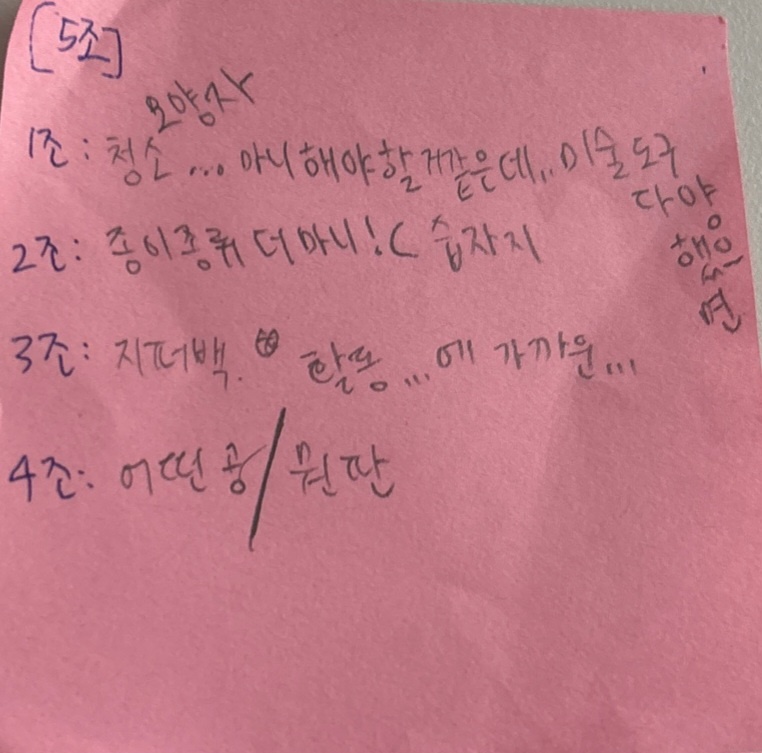 [5조]
모양자
1조: 청소... 마니해야할거같은데.. 미술도구
다양
했으
면
2조: 종이종류 더마니! ( 습자지
3조: 지퍼백. 활동...에 가까운...
4조: 어떤공/원판